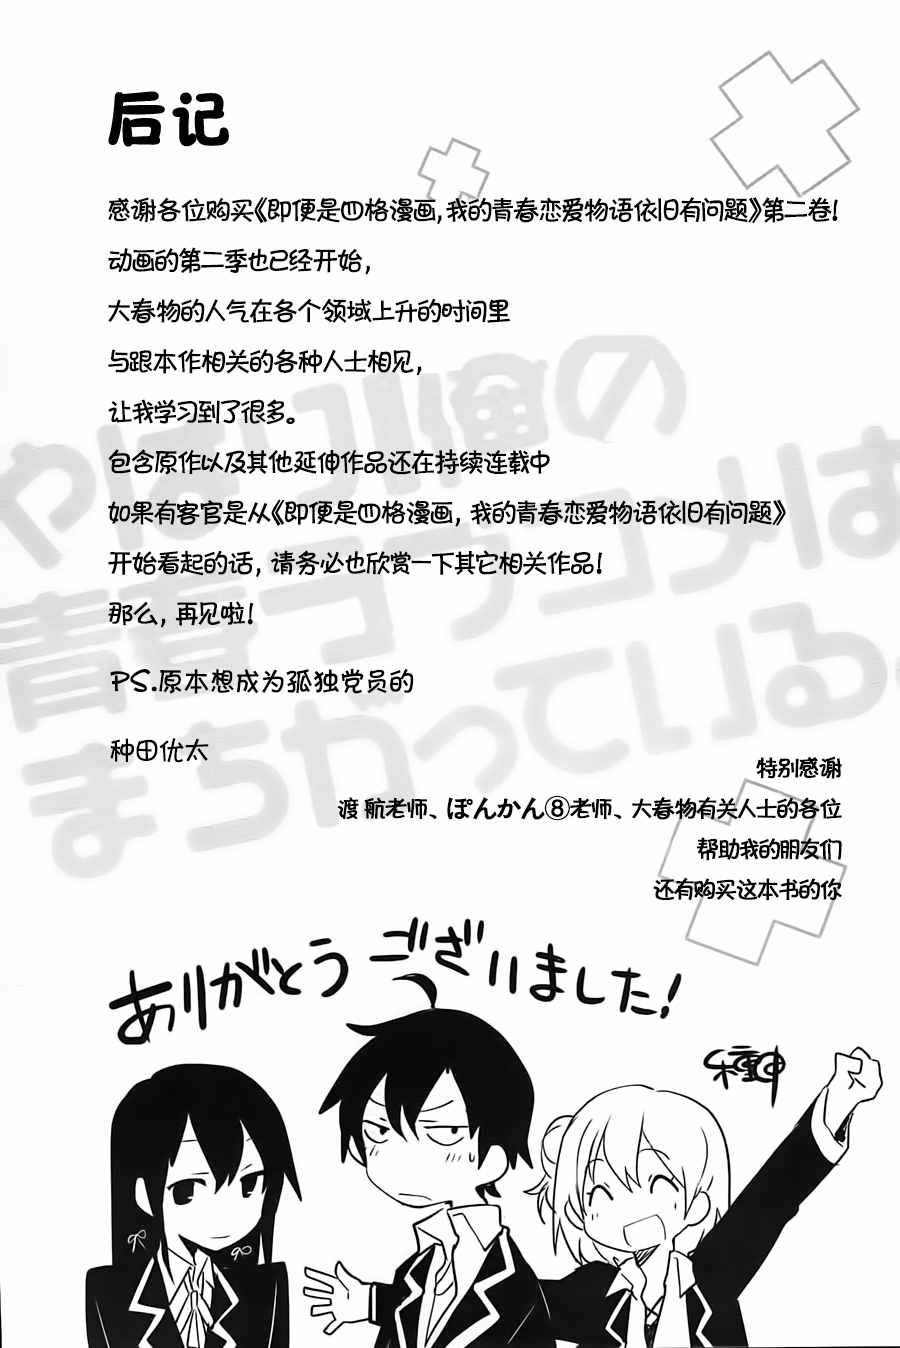 后记
感谢各位购买《即便是四格漫画,我的青春恋爱物语依旧有问题》第二卷!
动画的第二季也已经开始,
大春物的人气在各个领域上升的时间里
与跟本作相关的各种人士相见,
让我学习到了很多。
包含原作以及其他延伸作品还在持续连载中
如果有客官是从《即便是四格漫画,我的青春恋爱物语依旧有问题》
开始看起的话,请务必也欣赏一下其它相关作品!
那么,再见啦!
PS.原本想成为孤独党员的
种田优太
特别感谢
渡 航老师、ぽんかん⑧老师、大春物有关人士的各位
帮助我的朋友们
还有购买这本书的你
やはり俺の
青春ラブコメは
まちがっている。
ありがとうございました!